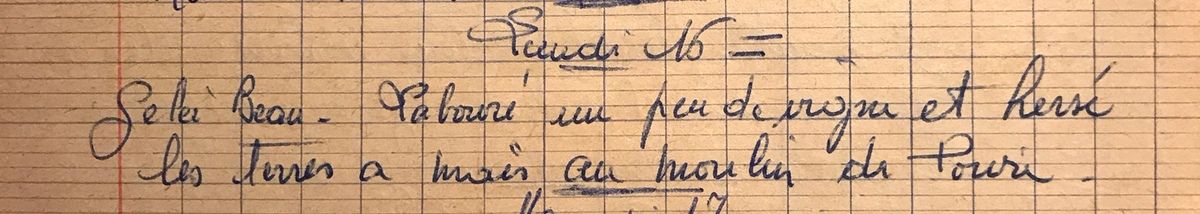 Lundi 16 =
Gelée Beau. Labouré un peu de vigne et hersé
les terres a maïs au moulin de
17